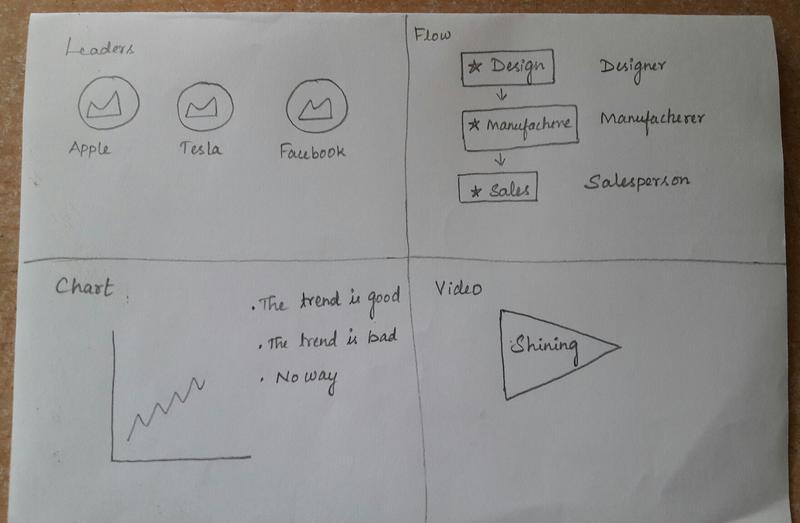 Leaders
Apple Tesla Facebook
Flow
★ Design Designer
★ Manufachere Manufacherer
★ Sales Salesperson
Chart
. The trend is good
. The trend is bad
. No way
Video
Shining